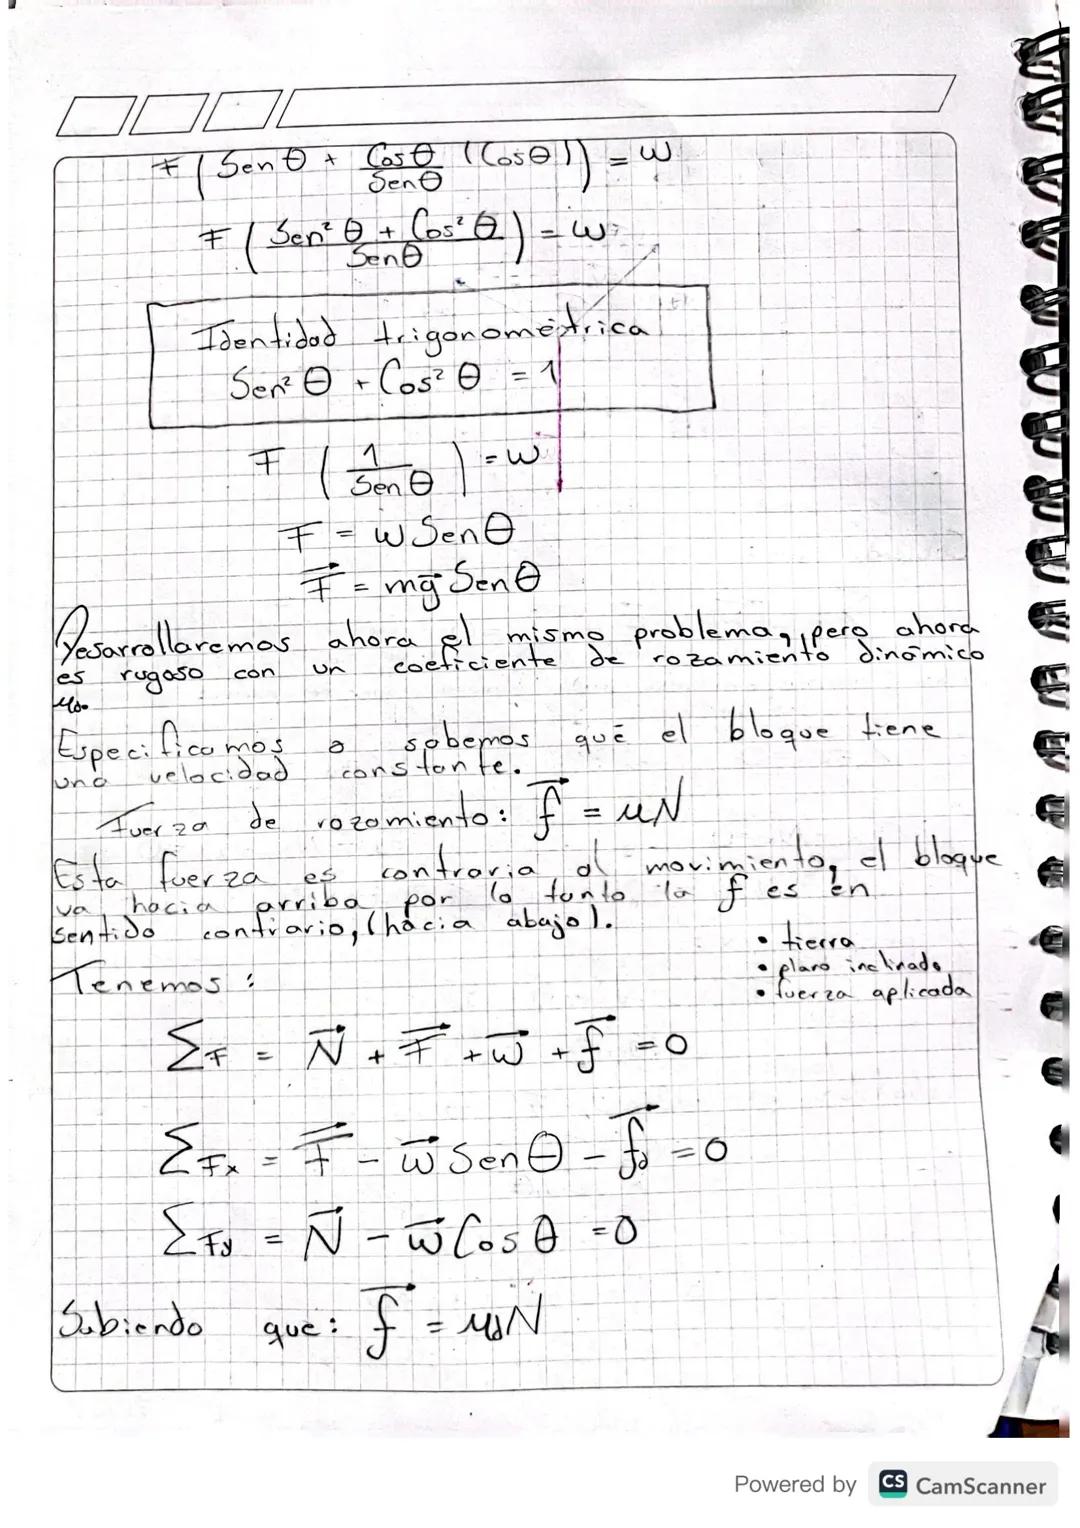 F (Senθ + Cosθ/Senθ (Cosθ)) = w
F (Sen²θ + Cos²θ / Senθ) = w
Identidad trigonométrica
Sen²θ + Cos²θ = 1
F (1/Senθ) = w
F = w Senθ
F⃗ = mg⃗ Senθ
Desarrollaremos ahora el mismo problema, pero ahora
es rugoso con un coeficiente de rozamiento dinámico
μd.
Especificamos o sabemos que el bloque tiene
una velocidad constante.
Fuerza de rozamiento: f⃗ = μN
Esta fuerza es contraria al movimiento, el bloque
va hacia arriba por lo tanto la f es en
sentido contrario, (hacia abajo).
• tierra
• plano inclinado
• fuerza aplicada
Tenemos:
ΣF = N⃗ + F⃗ + w⃗ + f⃗ = 0
ΣFx = F⃗ - w⃗ Senθ - f⃗d = 0
ΣFy = N⃗ - w⃗ Cosθ = 0
Sabiendo que: f⃗ = μdN
Powered by CS CamScanner